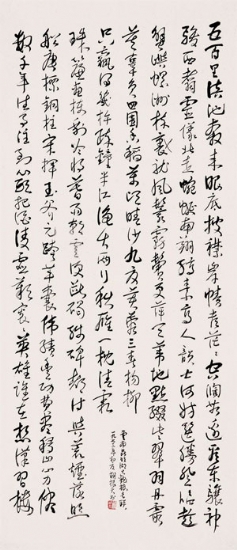 五百里滇池奔來眼底披襟岸幘喜茫茫空闊無邊看東驤神
駿西翥靈儀北走蜿蜒南翔縞素高人韻士何妨選勝登臨趁
蟹嶼螺洲梳裹就風鬟霧鬢更蘋天葦地點綴些翠羽丹霞
莫辜負四圍香稻萬頃晴沙九夏芙蓉三春楊柳
數千年往事注到心頭把酒凌虛嘆滾滾英雄誰在想漢習樓
船唐標鐵柱宋揮玉斧元跨革囊偉烈豐功費盡移山心力儘
珠簾畫棟卷不及暮雨朝雲便斷碣殘碑都付與蒼煙落照
只贏得幾杵疏鐘半江漁火兩行秋雁一枕清霜